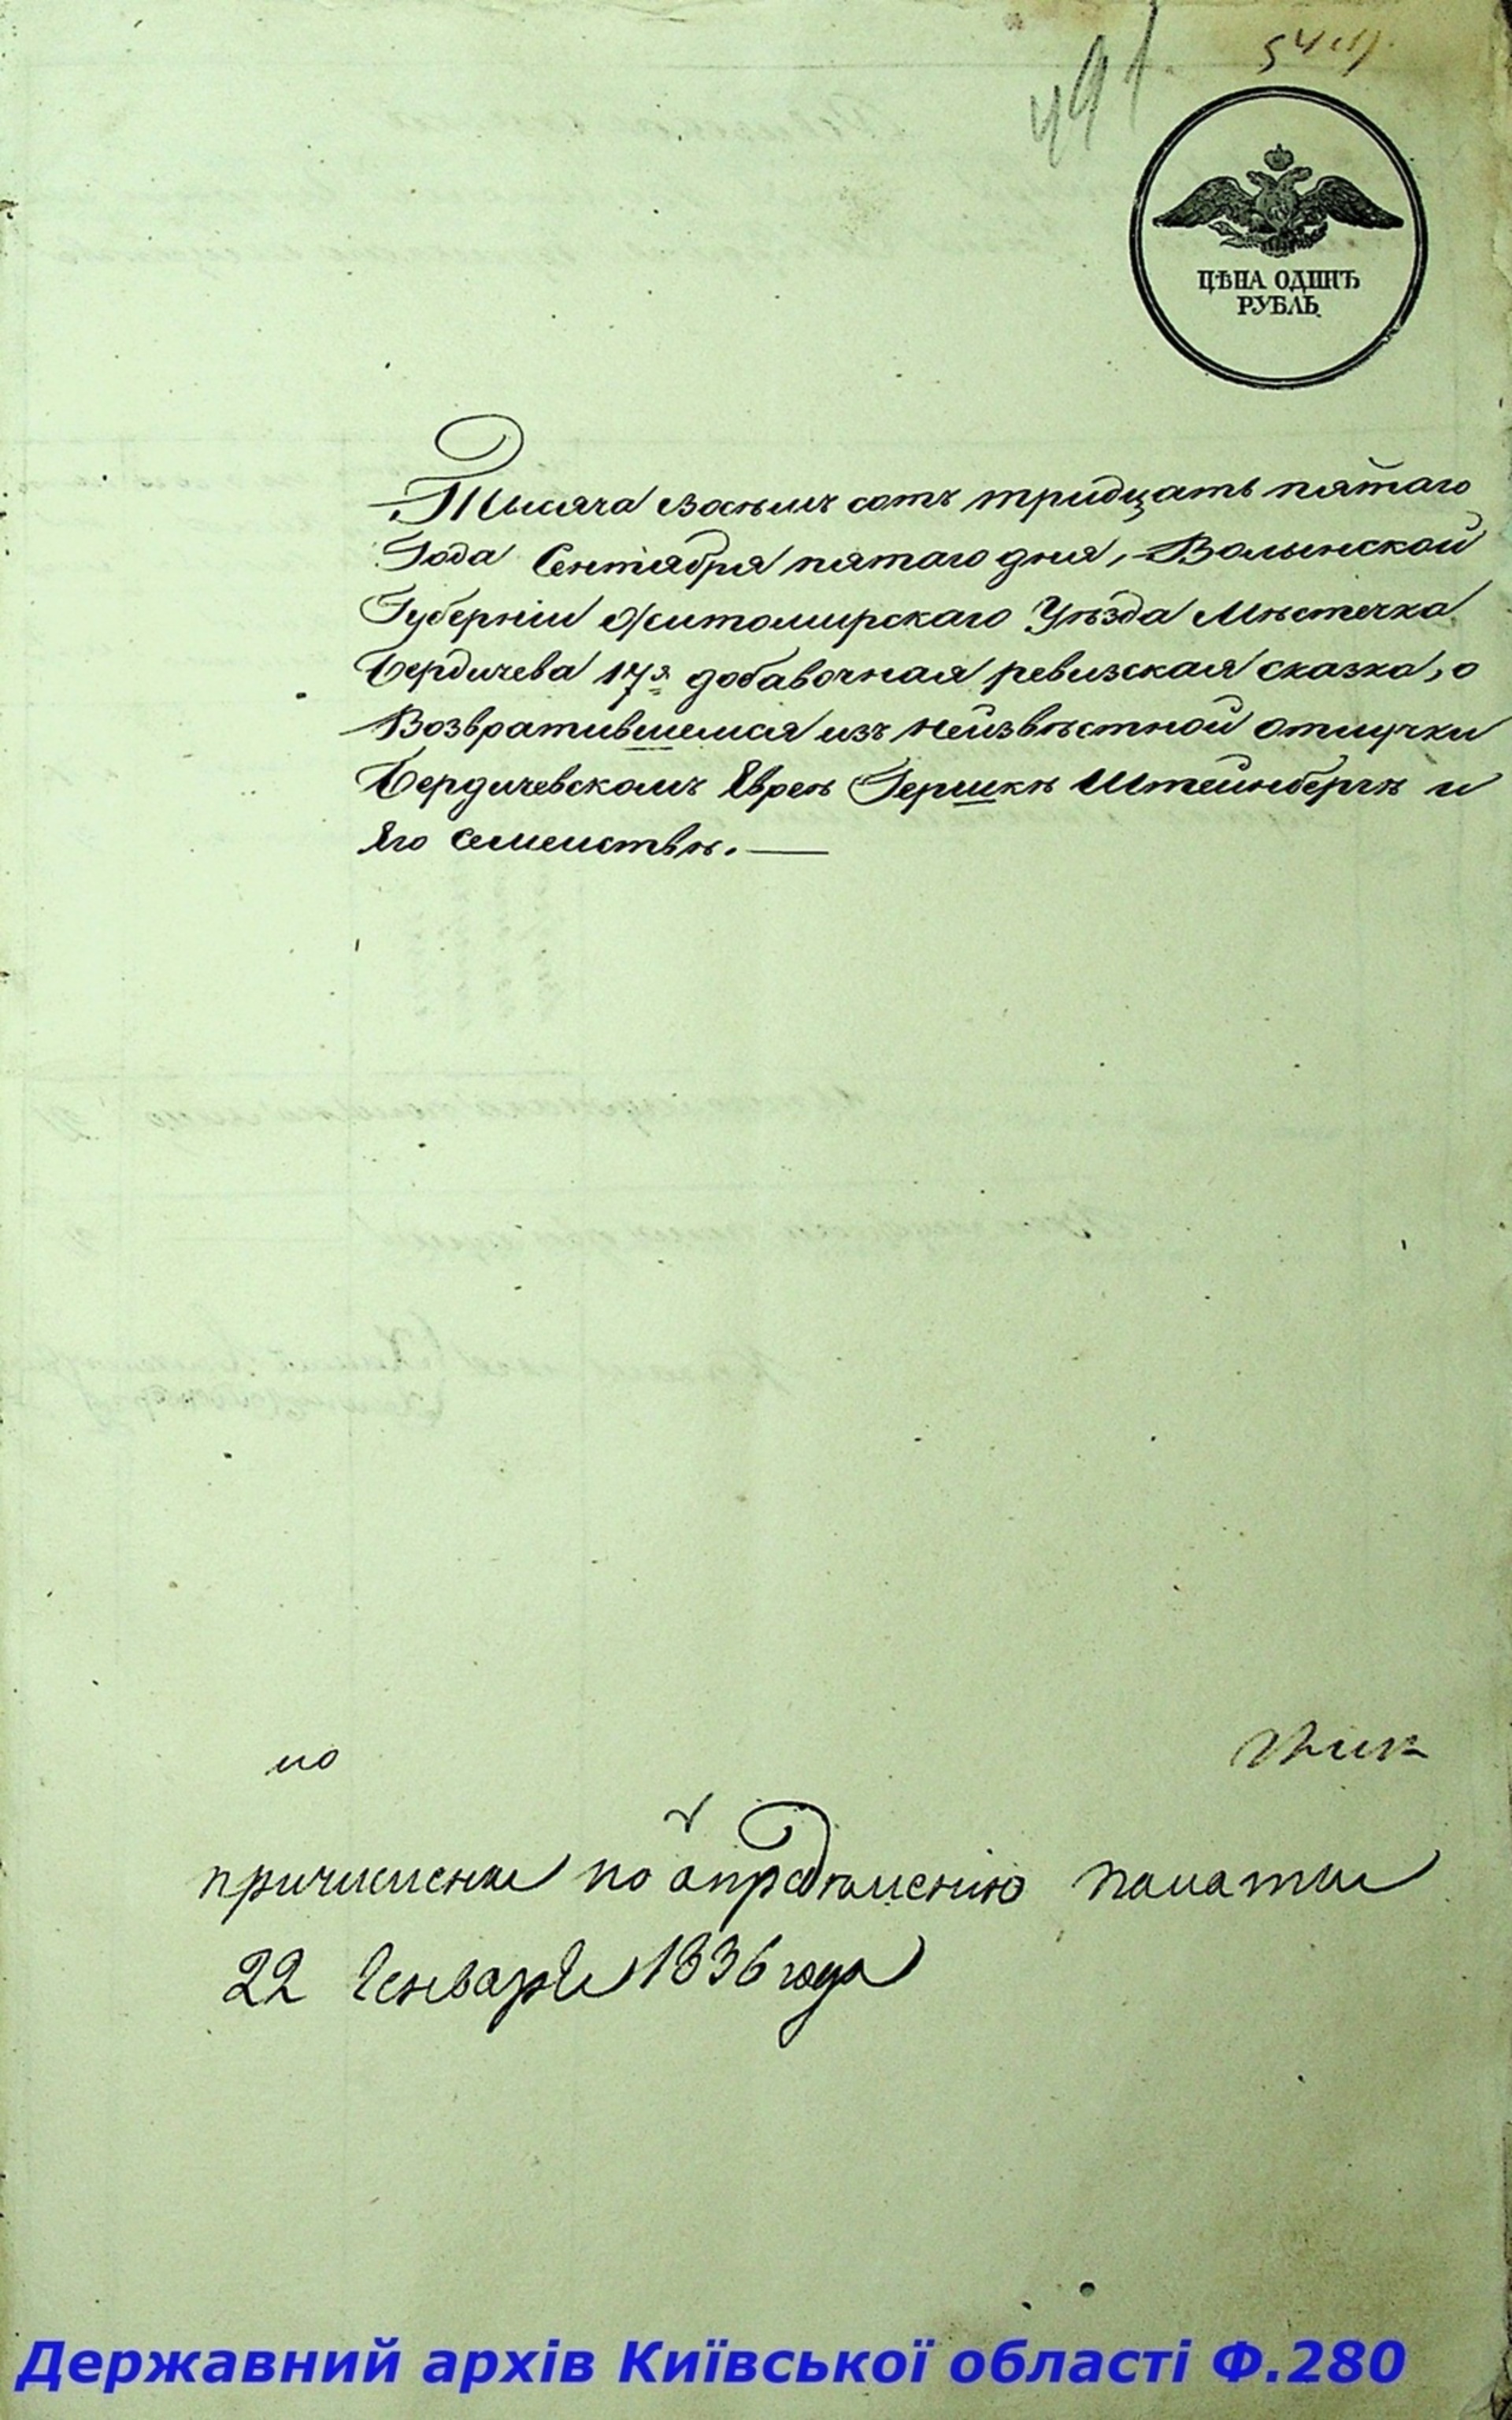 491
ЦѢНА ОДИНЪ
РУБЛЬ
Тысяча восемь сотъ тридцать пятаго
Года Сентября пятаго дня, Волынской
Губерніи Житомирскаго Уѣзда Мѣстечка
Бердичева 17я добавочная ревизская сказка, о
Возвратившемся изъ неизвѣстной отлучки
Бердичевскомъ Евреѣ Гершкѣ Штейнбергѣ и
Его семействѣ.
по
причислены по опредѣленію палаты
22 Генваря 1836 года
Державний архів Київської області Ф.280